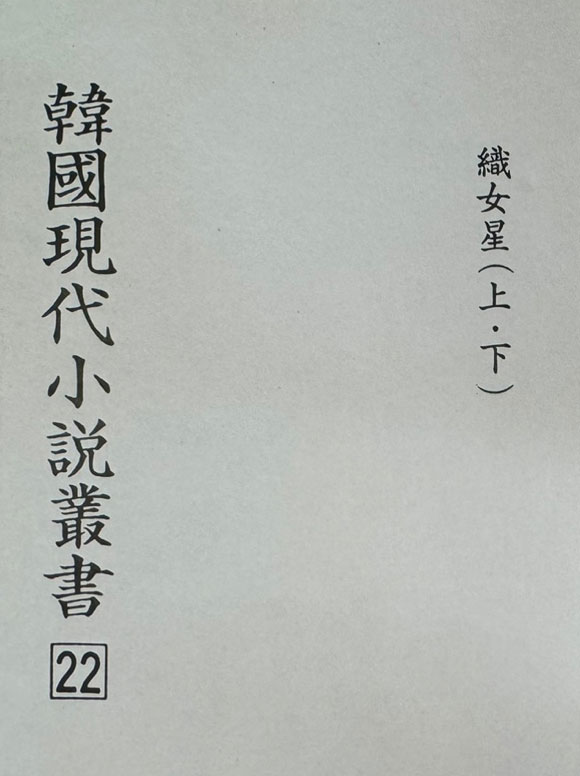 織女星(上·下)
韓國現代小説叢書 22